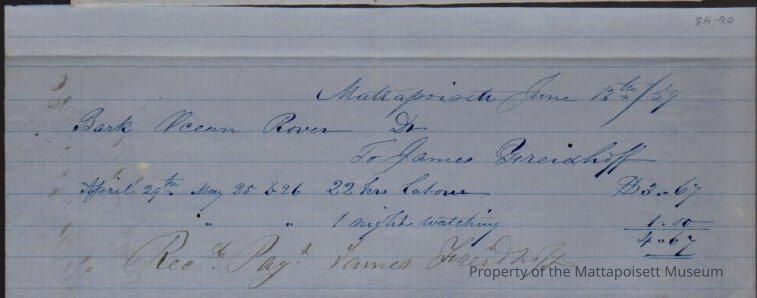 SH-90
Mattapoisett June 13th/59
Bark Ocean Rover Dr
To James Freidhoff
April 29th May 25 & 26 22 hrs labour $3-67
" " 1 night watching 1-00
4-67
Recd Payt James Freidhoff
Property of the Mattapoisett Museum